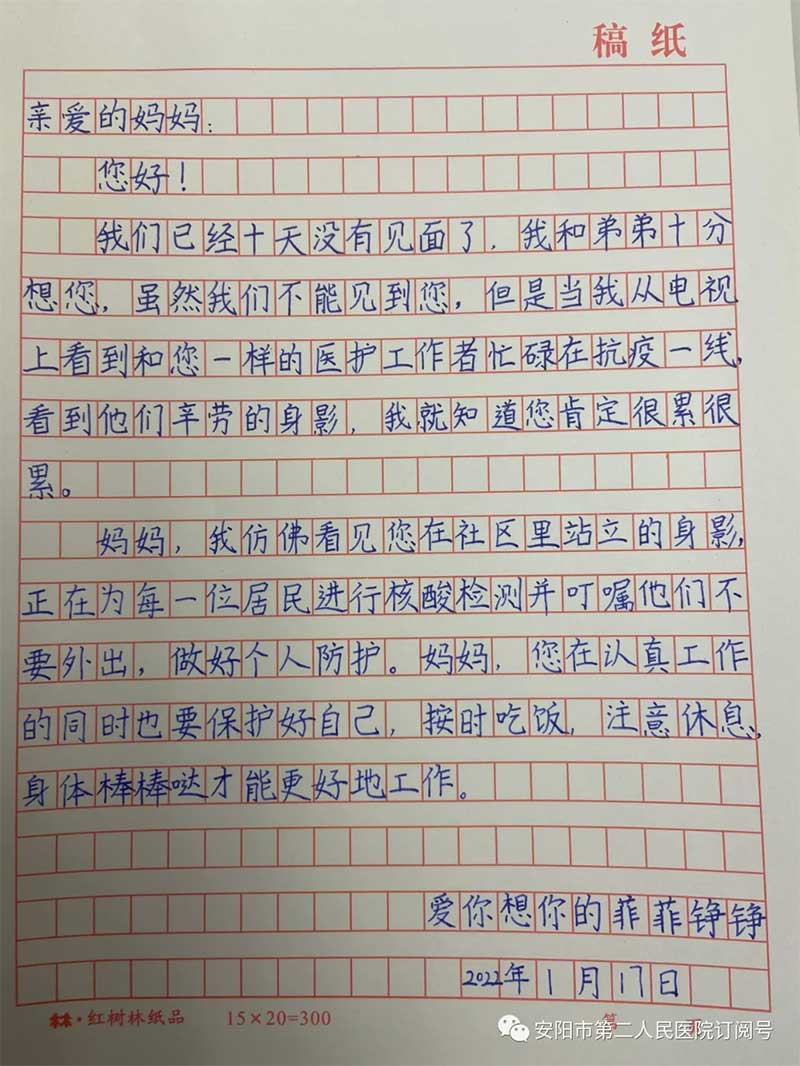 稿 纸
亲爱的妈妈:
您好!
我们已经十天没有见面了,我和弟弟十分
想您,虽然我们不能见到您,但是当我从电视
上看到和您一样的医护工作者忙碌在抗疫一线,
看到他们辛劳的身影,我就知道您肯定很累很
累。
妈妈,我仿佛看见您在社区里站立的身影,
正在为每一位居民进行核酸检测并叮嘱他们不
要外出,做好个人防护。妈妈,您在认真工作
的同时也要保护好自己,按时吃饭,注意休息,
身体棒棒哒才能更好地工作。
爱你想你的菲菲铮铮
2022年1月17日
红树林纸品 15×20=300 第 页
安阳市第二人民医院订阅号